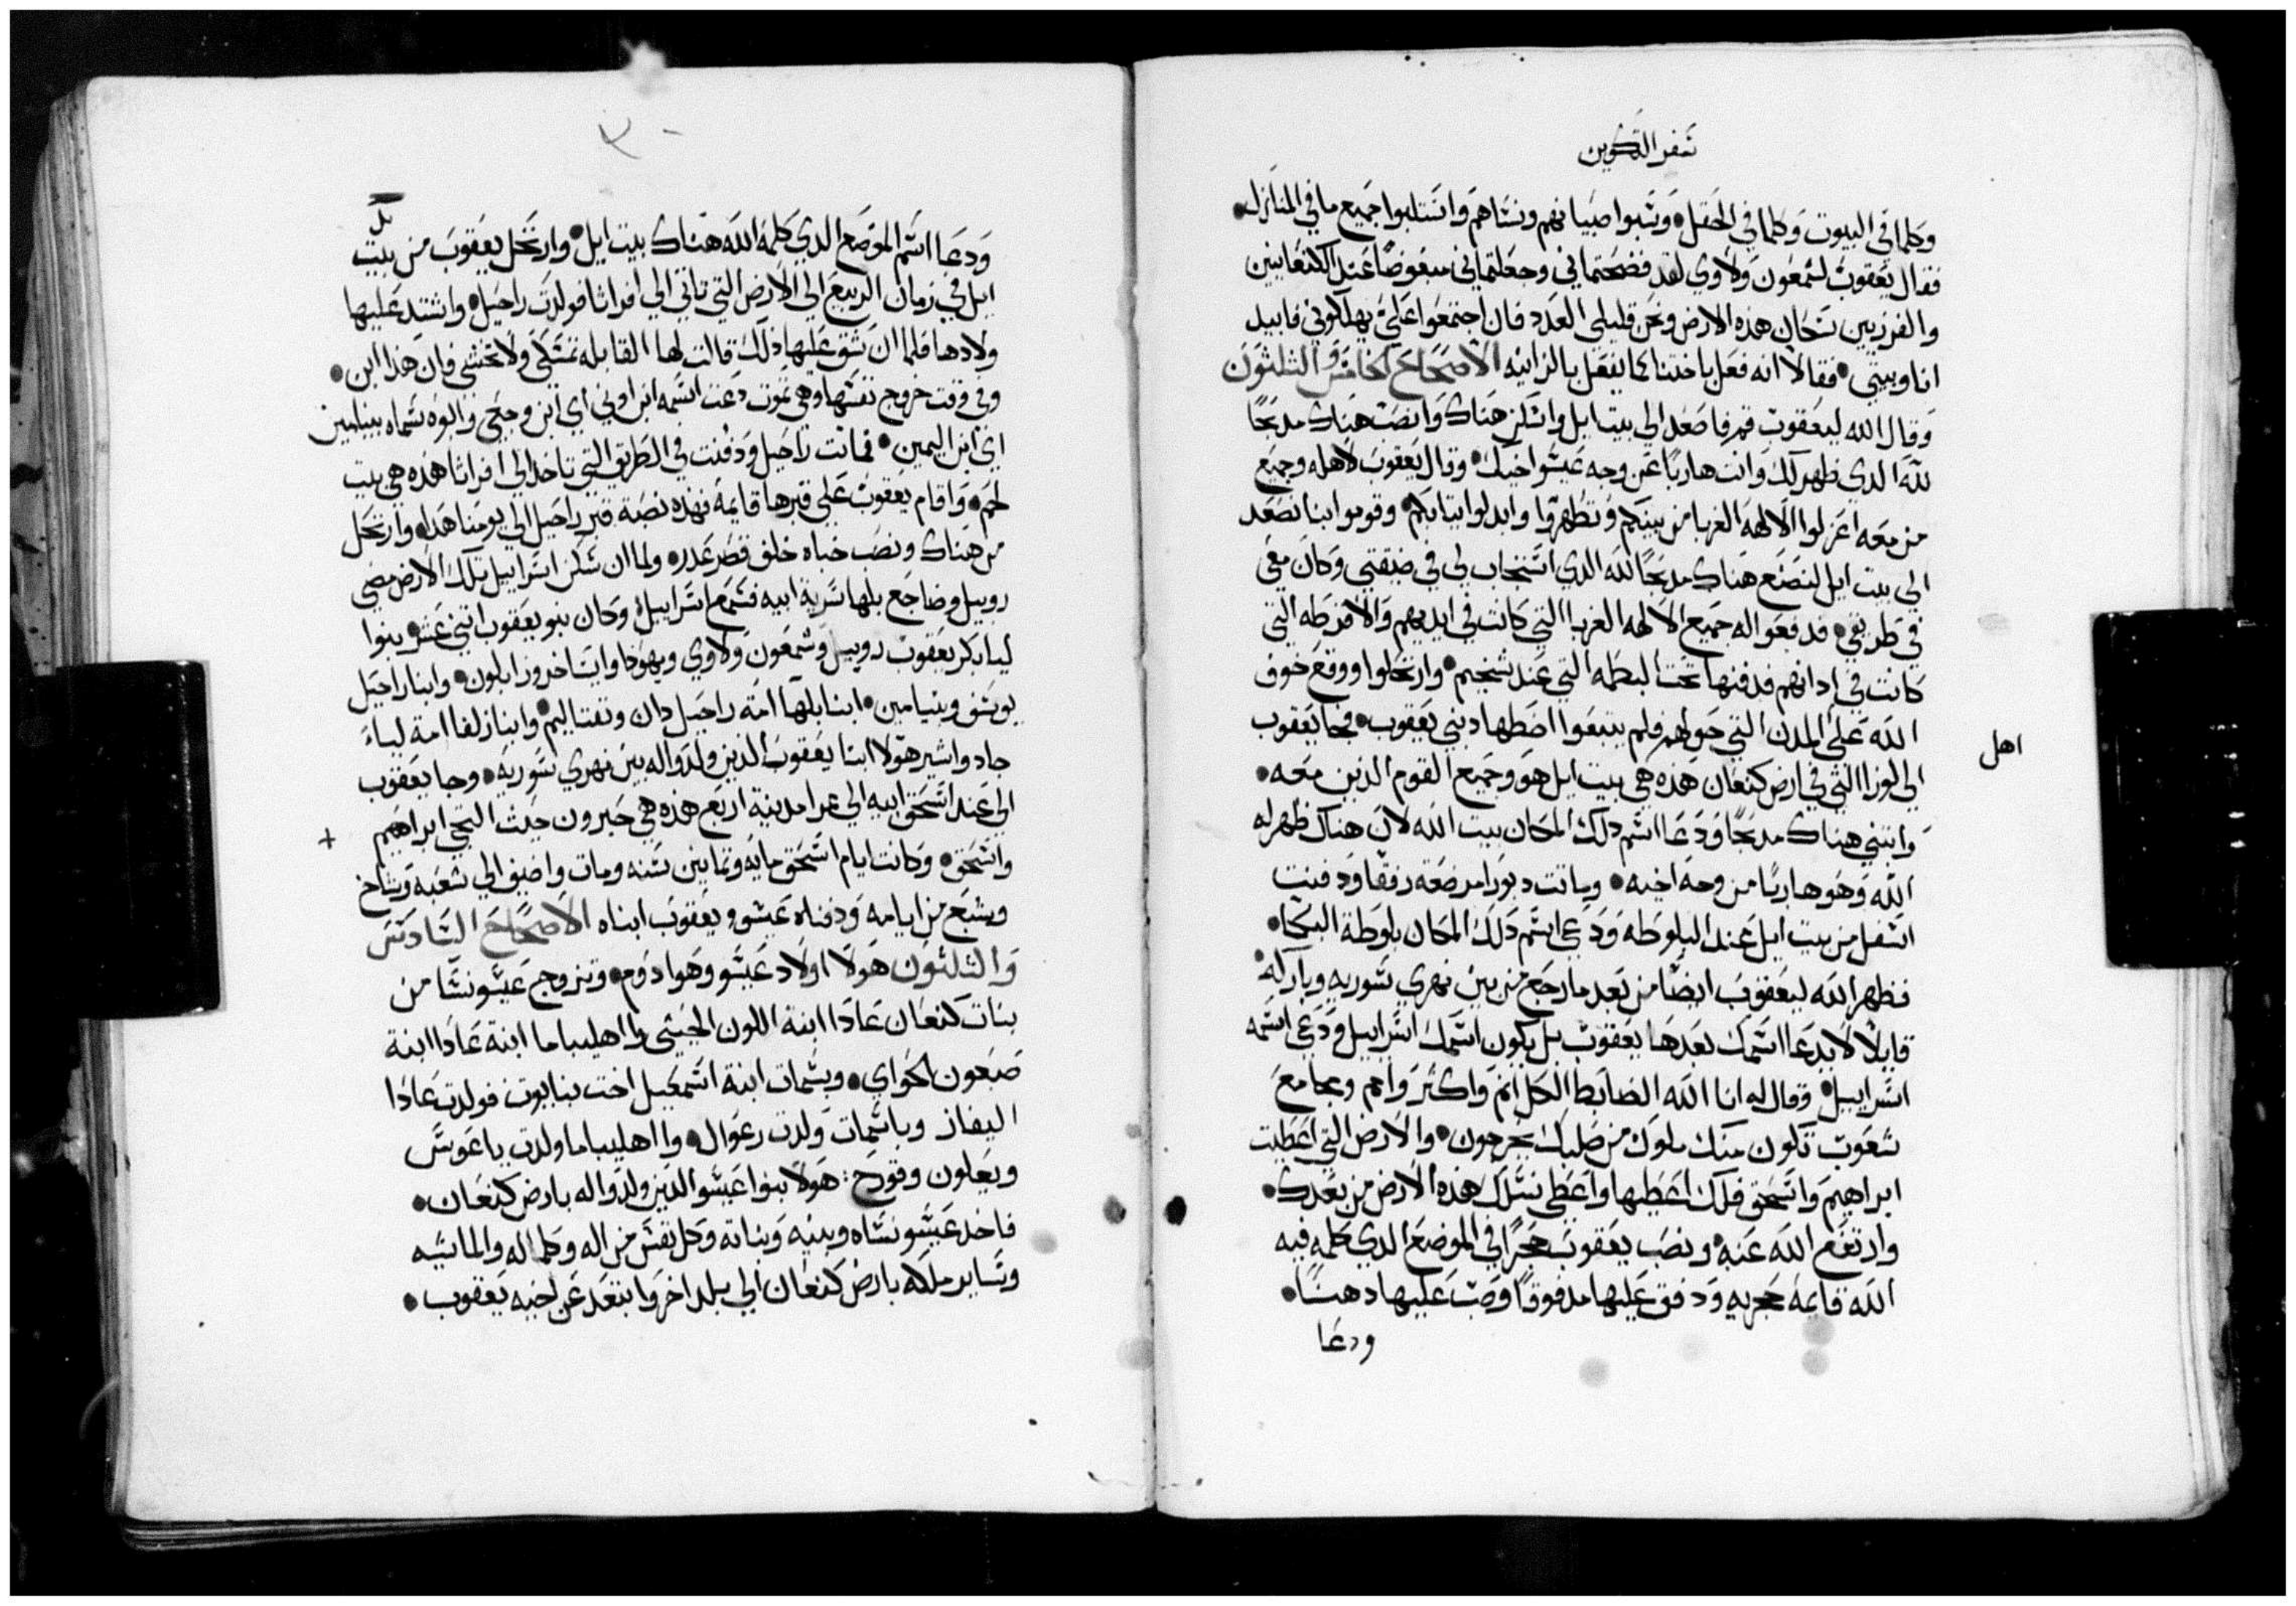 سفر التكوين
وكلما في البيوت وكلما في الحقل وسبوا صبيانهم ونساهم وانتلبوا جميع ما في المنازل
فقال يعقوب لشمعون ولاوي لقد فضحتماني وجعلتماني مبغوضا عند الكنعانيين
والفرزيين سكان هذه الارض ونحن قليلي العدد فان اجتمعوا علي يهلكوني فابيد
انا وبيتي فقالا انه فعل باختنا كما يفعل بالزانيه الاصحاح الخامس والثلثون
وقال الله ليعقوب قم فاصعد الي بيت ايل واسكن هناك وانصب هناك مدبحا
لله الدي ظهر لك وانت هاربا عن وجه عيسو اخيك وقال يعقوب لاهله وجميع
من معه اعزلوا الالهه الغربا من بينكم وتطهروا وابدلوا ثيابكم وقوموا بنا نصعد
الي بيت ايل لنصنع هناك مدبحا لله الدي استجاب لي في ضيقتي وكان معي
في طريقي فدفعوا له جميع الالهه الغربا التي كانت في ايديهم والاقرطه التي
كانت في ادانهم فدفنها تحت البطمه التي عند شخيم وارتحلوا ووقع خوف
الله علي المدن التي حولهم فلم يتبعوا اضطهاد بني يعقوب فجا يعقوب
اهل
الي لوزا التي في ارض كنعان هذه هي بيت ايل هو وجميع القوم الذين معه
وابتني هناك مدبحا ودعا اسم دلك المكان بيت الله لان هناك ظهر له
الله وهو هاربا من وجه اخيه وماتت دبورا مرضعة رفقا ودفنت
اسفل من بيت ايل عند البلوطه ودعي اسم دلك المكان بلوطة البكا
فظهر الله ليعقوب ايضا من بعد ما رجع من بين نهري سوريه وباركه
قايلا لا يدعا اسمك بعدها يعقوب بل يكون اسمك اسراييل ودعي اسمه
اسراييل وقال له انا الله الضابط الكل انم واكثر وامم ومجامع
شعوب تكون منك ملوك من صلبك يخرجون والارض التي اعطيت
ابراهيم واسحق فلك اعطيها واعطي نسلك هذه الارض من بعدك
وارتفع الله عنه ونصب يعقوب حجرا في الموضع الدي كلمه فيه
الله قايمة حجريه ودفق عليها مدفوقا وصب عليها دهنا
ودعا
ودعا اسم الموضع الدي كلمه الله هناك بيت ايل وارتحل يعقوب من بيت
ايل في زمان الربيع الي الارض التي تاتي الي افراثا فولدت راحيل واشتد عليها
ولادها فلما ان شق عليها ذلك قالت لها القابله تمسكي ولا تخشي فان هذا ابن
وفي وقت خروج نفسها وهي تموت دعت اسمه ابن اوني اي ابن وجعي وابوه سماه بينامين
اي ابن اليمين فماتت راحيل ودفنت في الطريق التي تاخد الي افراثا هذه هي بيت
لحم واقام يعقوب علي قبرها قايمة فهذه نصبة قبر راحيل الي يومنا هدا وارتحل
من هناك ونصب خباه خلف قصر عدر ولما ان سكن اسراييل تلك الارض مضي
روبيل وضاجع بلها سرية ابيه فسمع اسراييل وكان بنو يعقوب اتني عشر بنوا
ليا بكر يعقوب روبيل وشمعون ولاوي ويهودا وايساخر وزابلون وابنا راحيل
يوسف وبنيامين ابنا بلها امة راحيل دان ونفتاليم وابنا زلفا امة لياء
جاد واشير هولا ابنا يعقوب الذين ولدوا له بين نهري سوريه وجا يعقوب
الي عند اسحق ابيه الي ممرا مدينة اربع هذه هي حبرون حيث التجي ابراهيم
واسحق وكانت ايام اسحق مايه وتمانين سنه ومات واضيف الي شعبه وشاخ
وشبع من ايامه ودفناه عيسو ويعقوب ابناه الاصحاح السادس
والثلثون هولا اولاد عيسو وهو ادوم وتزوج عيسو نسا من
بنات كنعان عادا ابنة اللون الحيثي واهليباما ابنة عادا ابنة
صبعون الحواي وبسمات ابنة اسمعيل اخت بنايوت فولدت عادا
اليفاز وباسمات ولدت رعوال واهليباما ولدت ياعوس
ويعلون وقورح هولا بنوا عيسو الدين ولدوا له بارض كنعان
فاخد عيسو نساه وبنيه وبناته وكل نفس من اله وكلما له والماشيه
وساير ملكه بارض كنعان الي بلد اخر وابتعد عن اخيه يعقوب